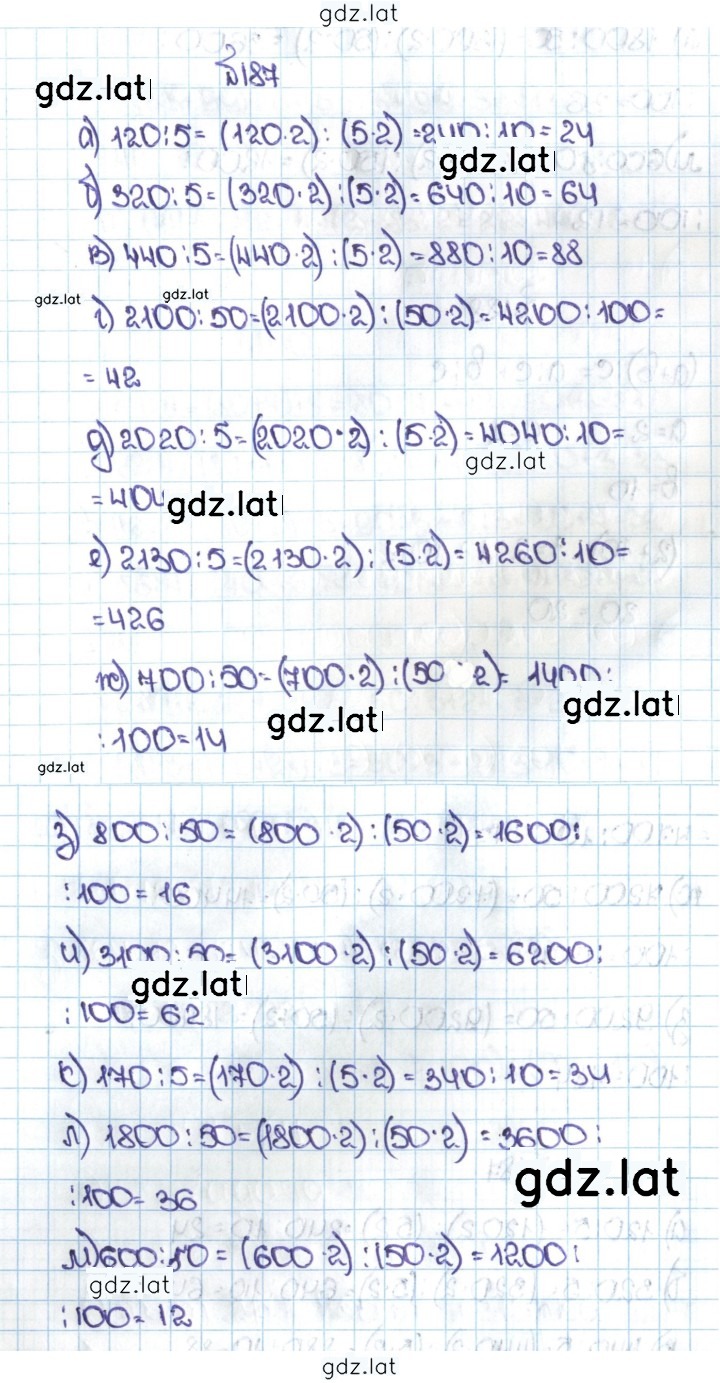 gdz.lat
№187
gdz.lat
а) 120:5= (120·2) : (5·2) =240:10= 24
gdz.lat
б) 320:5= (320·2) :(5·2)= 640:10= 64
в) 440:5=(440·2) :(5·2) =880:10=88
gdz.lat gdz.lat
г) 2100:50=(2100·2) : (50·2)= 4200:100=
= 42
д) 2020:5=(2020·2) : (5·2)=4040:10=
gdz.lat
=404 gdz.lat
е) 2130:5=(2130·2) : (5·2)= 4260:10=
=426
ж) 700:50= (700·2) :(50·2)= 1400:
gdz.lat gdz.lat
:100=14
gdz.lat
з) 800:50= (800·2) :(50·2)= 1600:
:100= 16
и) 3100:50= (3100·2) :(50·2)= 6200:
gdz.lat
:100= 62
к) 170:5=(170·2) :(5·2)= 340:10=34
л) 1800:50=(1800·2) :(50·2) = 3600:
gdz.lat
:100= 36
м) 600:50 = (600·2) :(50·2) =1200:
gdz.lat
:100= 12
gdz.lat